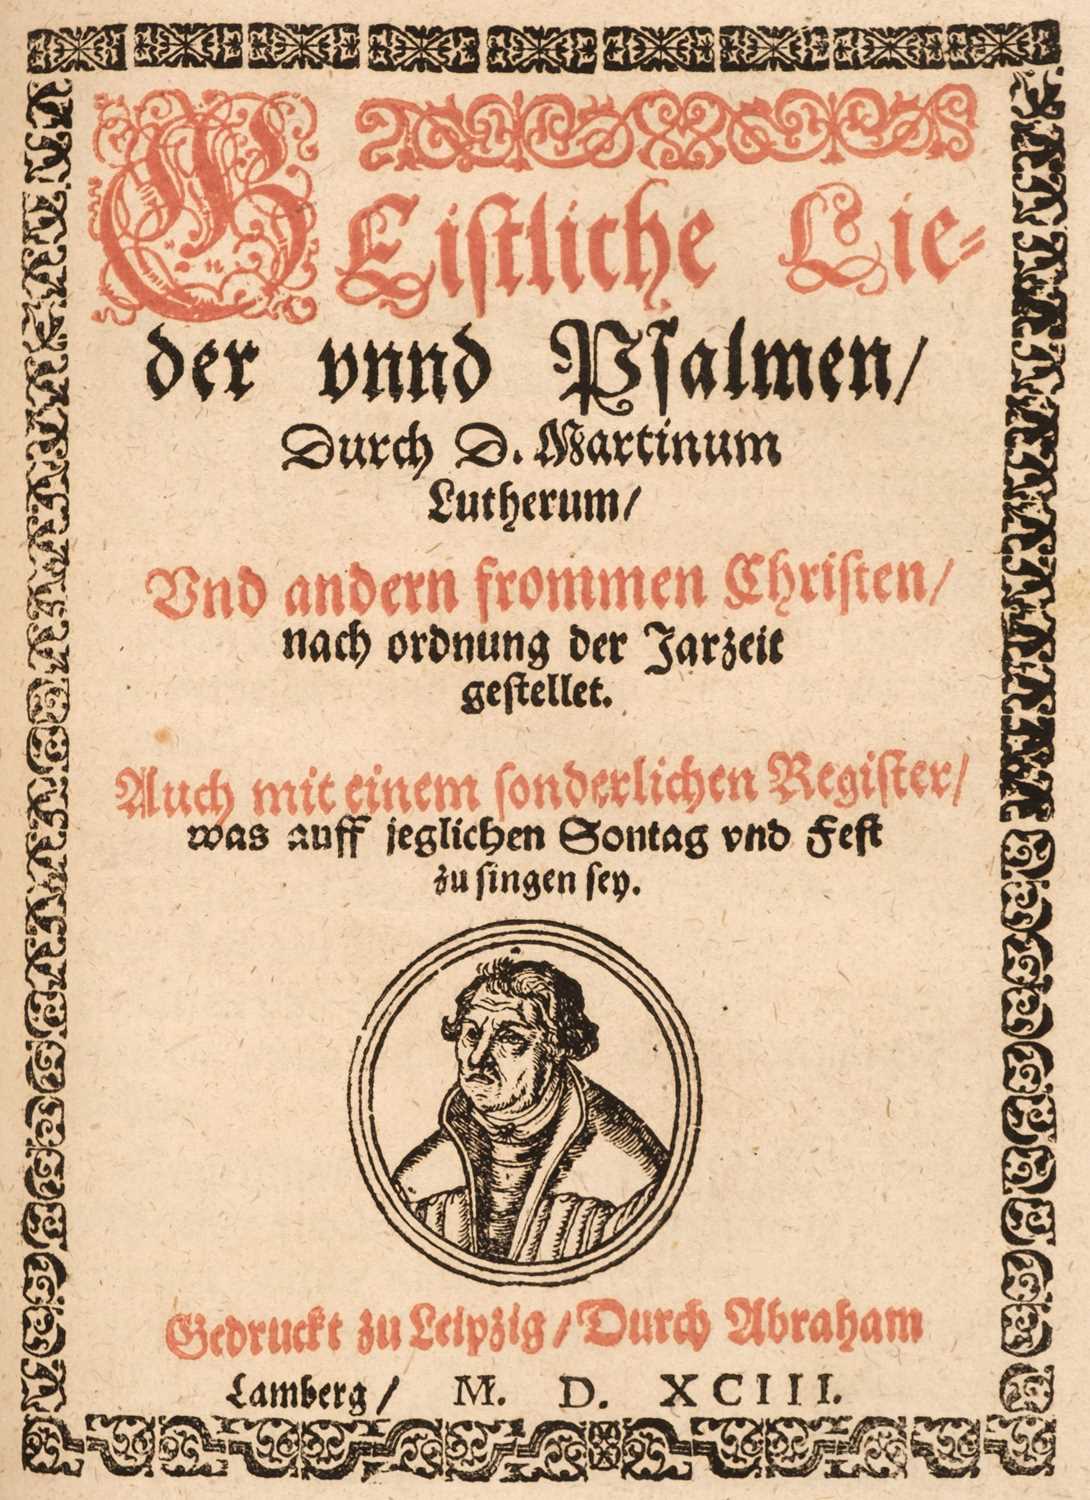 GEistliche Lie-
der vnnd Psalmen/
Durch D. Martinum
Lutherum/
Vnd andern frommen Christen/
nach ordnung der Jarzeit
gestellet.
Auch mit einem sonderlichen Register/
was auff jeglichen Sontag vnd Fest
zu singen sey.
Gedruckt zu Leipzig/Durch Abraham
Lamberg/ M. D. XCIII.